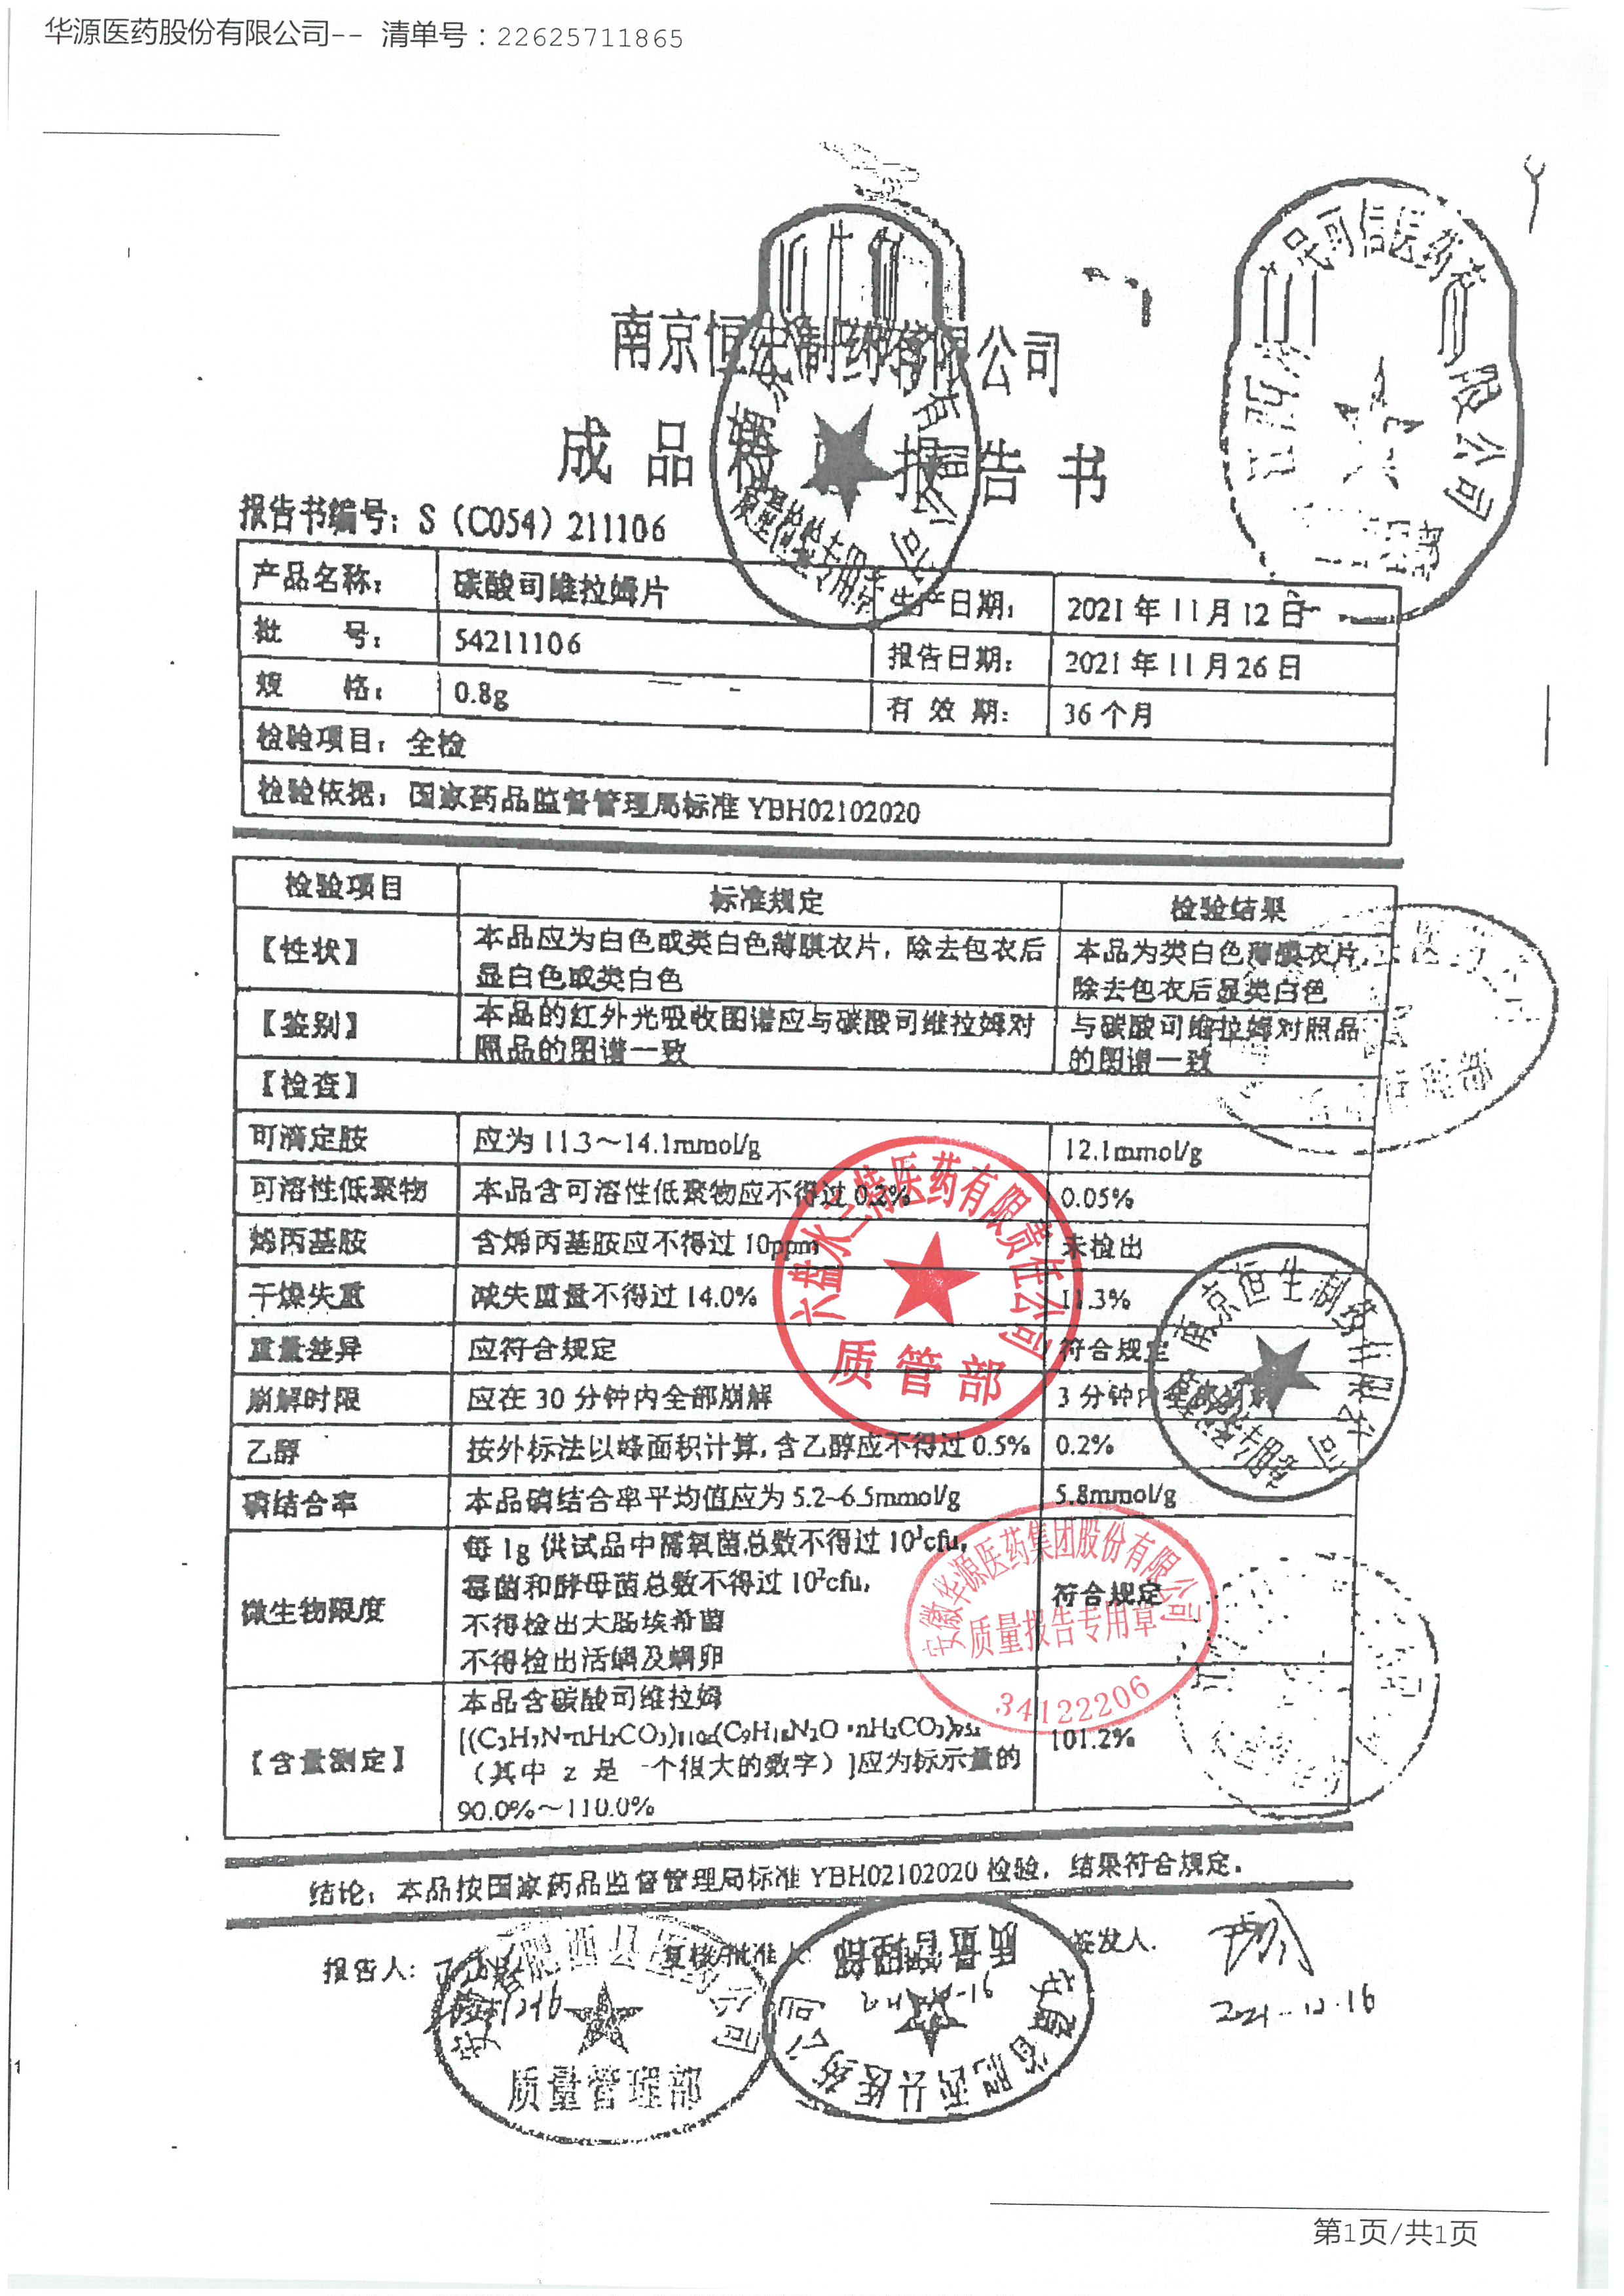 华源医药股份有限公司-- 清单号：22625711865
南京恒生制药有限公司
成品检 报告书
报告书编号：S（C054）211106
产品名称： 碳酸司维拉姆片 生产日期： 2021年11月12日
批 号： 54211106 报告日期： 2021年11月26日
规 格： 0.8g 有效期： 36个月
检验项目：全检
检验依据：国家药品监督管理局标准YBH02102020
检验项目 标准规定 检验结果
【性状】 本品应为白色或类白色薄膜衣片，除去包衣后显白色或类白色 本品为类白色薄膜衣片，除去包衣后显类白色
【鉴别】 本品的红外光吸收图谱应与碳酸司维拉姆对照品的图谱一致 与碳酸司维拉姆对照品的图谱一致
【检查】
可滴定胺 应为11.3～14.1mmol/g 12.1mmol/g
可溶性低聚物 本品含可溶性低聚物应不得过0.2% 0.05%
烯丙基胺 含烯丙基胺应不得过10ppm 未检出
干燥失重 减失重量不得过14.0% 11.3%
重量差异 应符合规定 符合规定
崩解时限 应在30分钟内全部崩解 3分钟内全部崩解
乙醇 按外标法以峰面积计算,含乙醇应不得过0.5% 0.2%
磷结合率 本品磷结合率平均值应为5.2~6.5mmol/g 5.8mmol/g
微生物限度 每1g供试品中需氧菌总数不得过10³cfu,
霉菌和酵母菌总数不得过10²cfu,
不得检出大肠埃希菌
不得检出活螨及螨卵
符合规定
【含量测定】 本品含碳酸司维拉姆
（其中 z 是一个很大的数字）]应为标示量的
90.0%～110.0%
101.2%
结论：本品按国家药品监督管理局标准YBH02102020检验，结果符合规定。
报告人： 复核/批准人 签发人.
2021-12-16
六盘水三特医药有限责任公司
质管部
南京恒生制药有限公司
安徽华源医药集团股份有限公司
质量报告专用章
34122206
质量管理部
安徽省肥西县医药公司
第1页/共1页